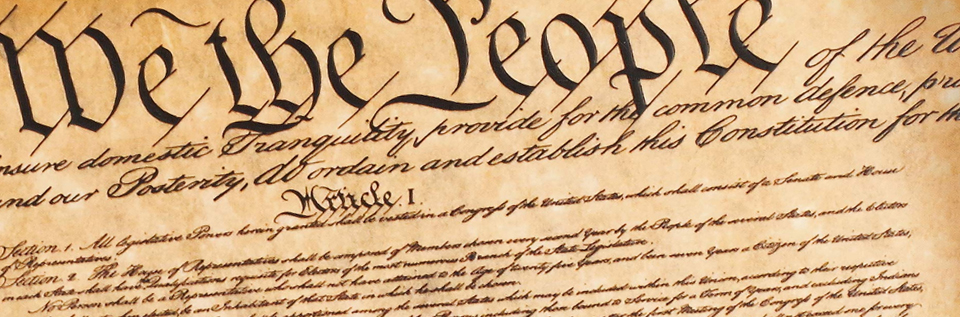 We the People of the
nsure domestic Tranquility, provide for the common defence,
and our Posterity, do ordain and establish this Constitution for
Article. I.
Section. 1. All legislative Powers herein granted shall be vested in a Congress of the United States, which shall consist of a Senate and House
of Representatives.
Section. 2. The House of Representatives shall be composed of Members chosen every second Year by the People of the several States, and the Electors
in each State shall have Qualifications requisite for Electors of the most numerous Branch of the State Legislature.
No Person shall be a Representative who shall not have attained to the Age of twenty five Years, and been seven Years a Citizen of the United States,
an Inhabitant of that State in which he shall be chosen.
apportioned among the several States which may be included within this Union, according to their respective
including those bound to Service for a Term of Years, and excluding Indians
after the first Meeting of the Congress of the United States,